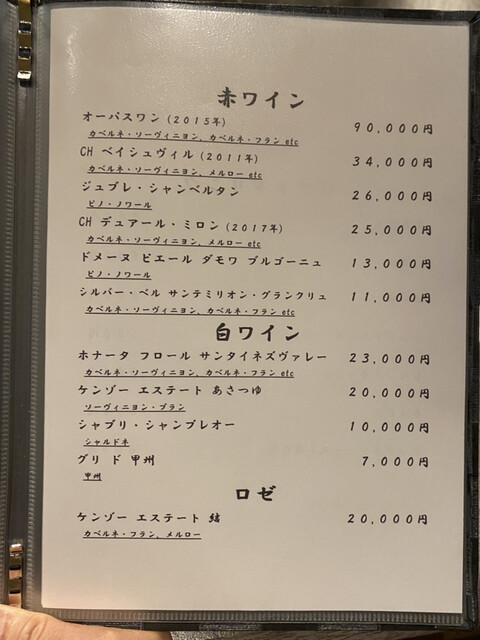 赤ワイン
オーパスワン (2015年) 90,000円
カベルネ・ソーヴィニヨン、カベルネ・フラン etc
CH ベイシュヴィル (2011年) 34,000円
カベルネ・ソーヴィニヨン、メルロー etc
ジュブレ・シャンベルタン 26,000円
ピノ・ノワール
CH デュアール・ミロン (2017年) 25,000円
カベルネ・ソーヴィニヨン、メルロー etc
ドメーヌ ピエール ダモワ ブルゴーニュ 13,000円
ピノ・ノワール
シルバー・ベル サンテミリオン・グランクリュ 11,000円
カベルネ・ソーヴィニヨン、カベルネ・フラン etc
白ワイン
ホナータ フロール サンタイネズヴァレー 23,000円
カベルネ・ソーヴィニヨン、カベルネ・フラン etc
ケンゾー エステート あさつゆ 20,000円
ソーヴィニヨン・ブラン
シャブリ・シャンブレオー 10,000円
シャルドネ
グリ ド 甲州 7,000円
甲州
ロゼ
ケンゾー エステート 結 20,000円
カベルネ・フラン、メルロー